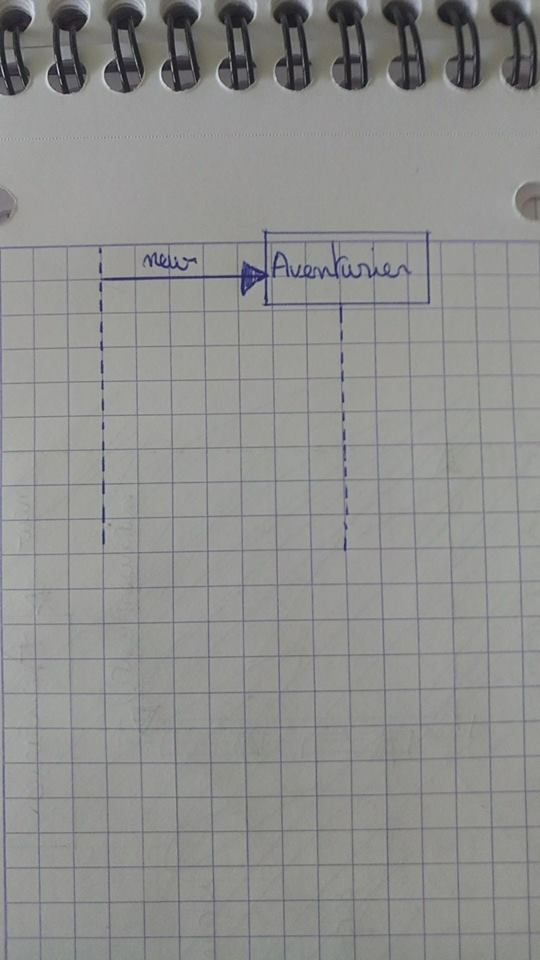 new
Aventurier